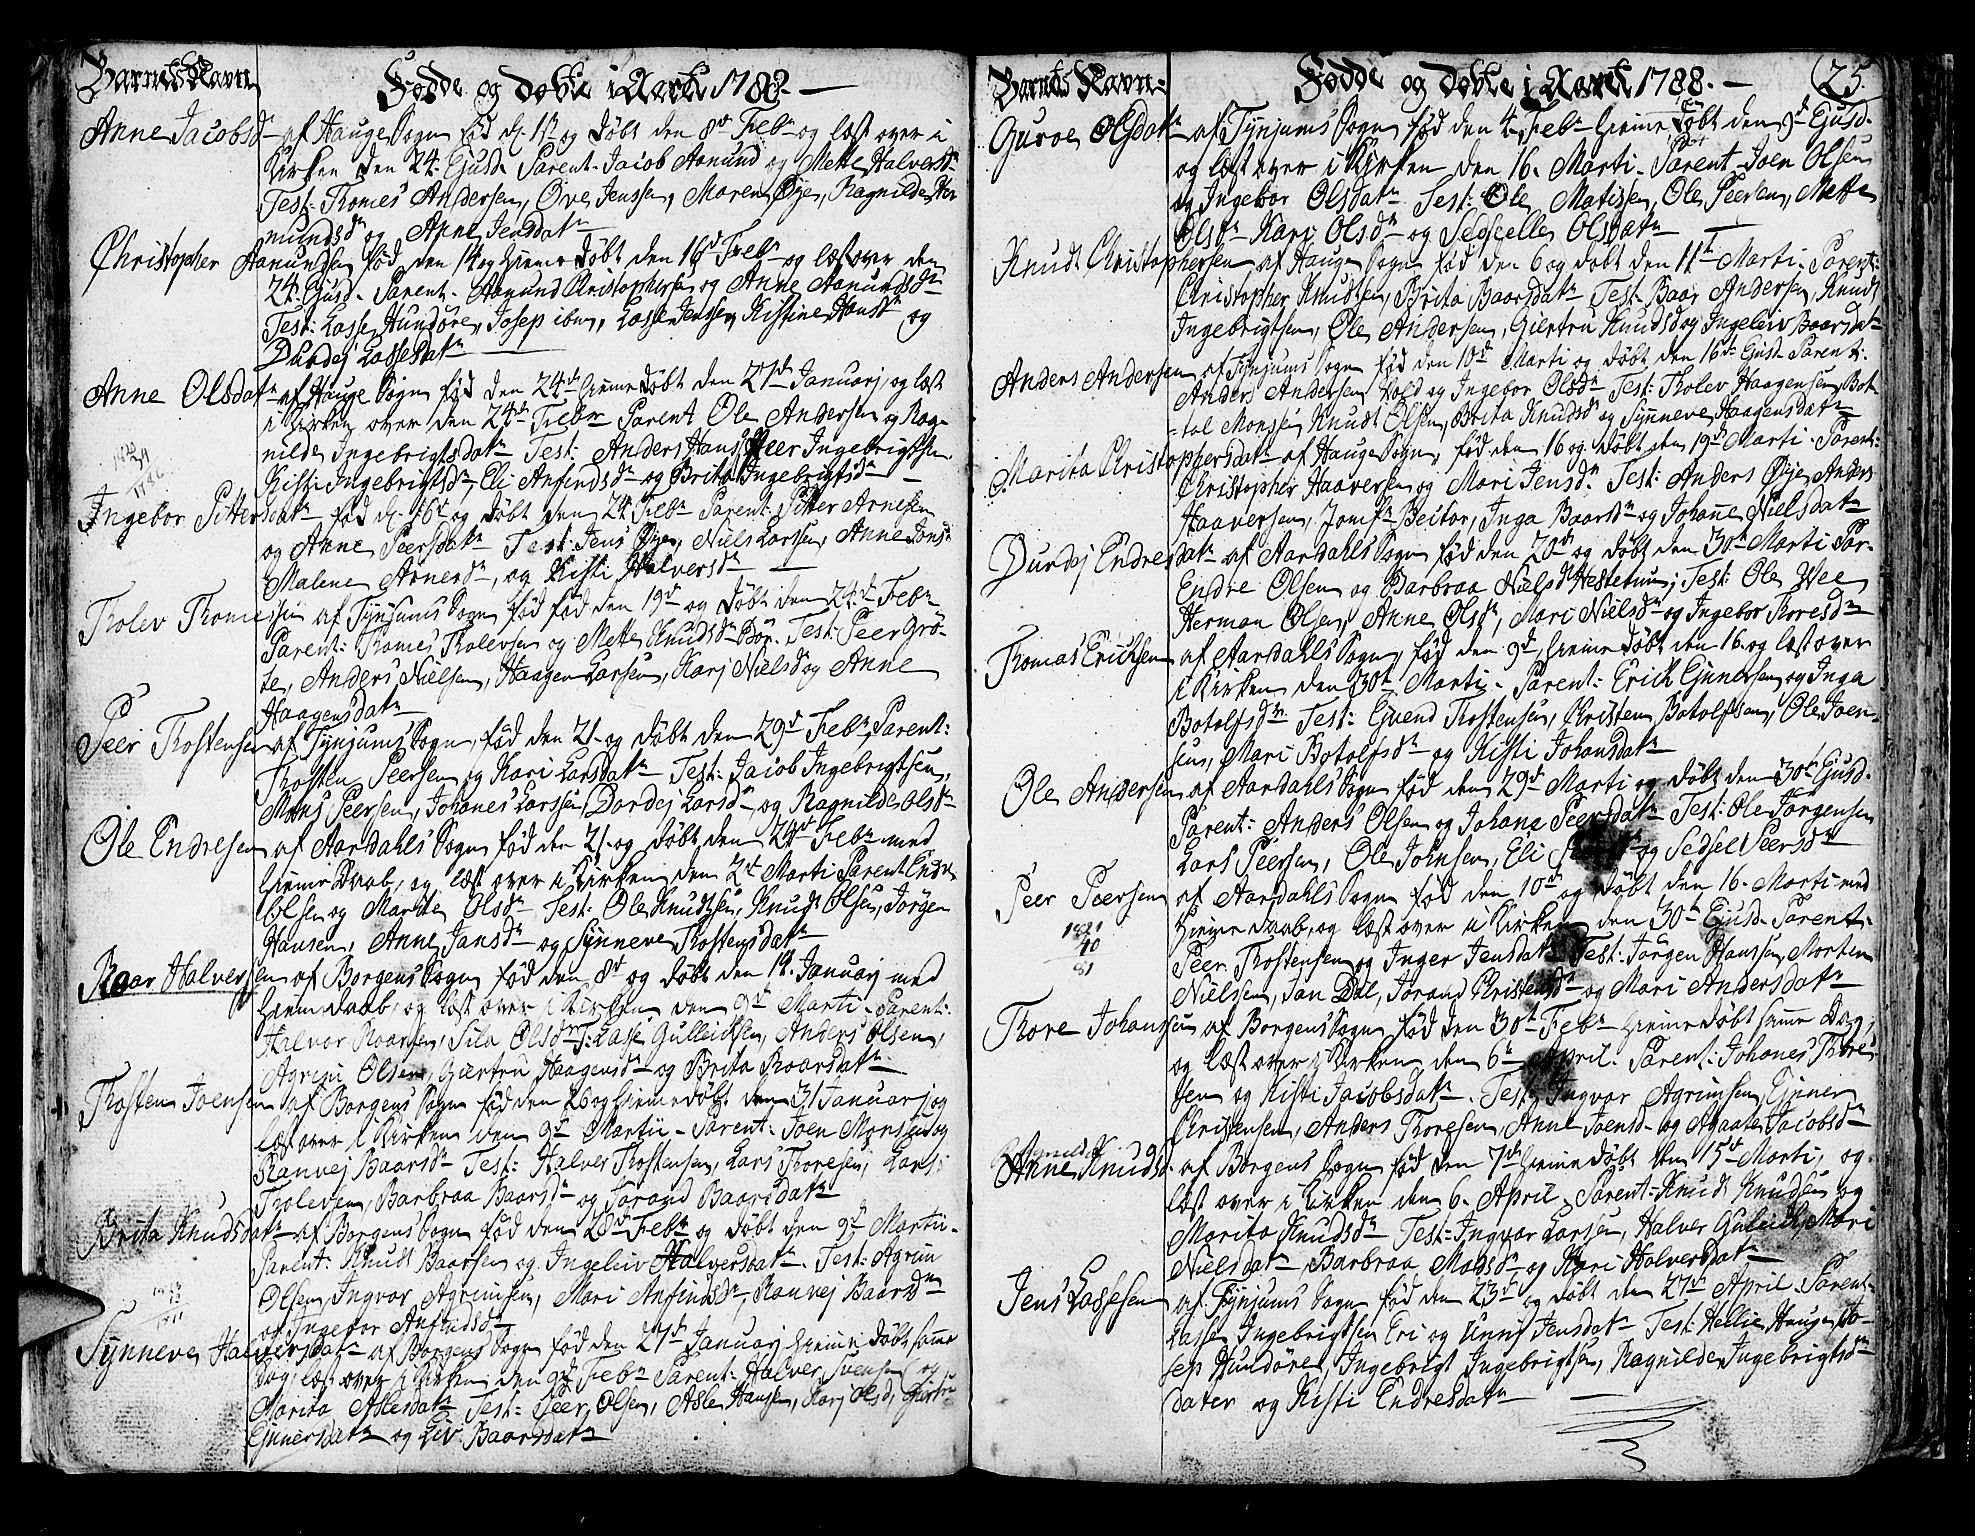 Barnets Navn
Fødde og døbte i Aaret 1788. —
Anne Jacobsd. af Hauge Sogn fød d. 1st og døbt den 8de Febr og læst over i
Kirken den 24. Ejusd. Parent. Jacob Aamund og Mette Halversdr
Test: Thomes Andersen, Ove Jenssen, Maren Øye, Ragnilde
mundsdr og Anne Jensdatr
Christopher Aamundsen fød den 14 og hieme døbt den 16d Febr og læst over den
24. Ejusd. Parent. Aamund Christophersen og Anne Aamundsdr
Test: Lasse Hundøre, Josep ibm, Lasse Jenssen, Kistine Hansdr og
Durdej Lassesdatr
Anne Olsdatr af Hauge Sogn fød den 24de hieme døbt den 27de Januarj, og læst
i Kirken over den 24de Febr Parent Ole Andersen og Rag-
nilde Ingebrigtsdatr Test: Anders Hans Peer Ingebrigtsen
Kisti Ingebrigtsdr, Eli Anfindsdr og Brita Ingebrigtsdr —
1786
Ingebor Pittersdatr fød d. 16d og døbt den 24 Febr Parent: Pitter Arnesen
og Anne Peersdatr Test: Jens Øye, Niels Larssen, Anne Jonsdr
Malene Arnesdr, og Kisti Halversdr —
Tholev Thomessen af Tynjums Sogn fød fød den 19d og døbt den 24de Febr
Parent: Thomes Tholevsen og Mette Knudsdr Bør. Test: Peer Grø-
te, Anders Nielsen, Haagen Larsen, Karj Nielsd og Anne
Haagensdatr
Peer Thostensen af Tynjums Sogn, fød den 21. og døbt den 29d Febr, Parent:
Thosten Peersen og Kari Larsdatr Test: Jacob Ingebrigtsen,
Mons Peersen, Johanes Larssen, Dordej Larsdr, og Ragnilde Olsdr
Ole Endresen af Aardahls Sogn fød den 21. og døbt den 24de Febr med
hieme Daab, og læst over i Kirken den 2d Marti Parent Endre
Olsen og Marite Olsdr Test: Ole Knudtsen, Knudt Olsen, Jørgen
Hansen, Anne Jansdr og Synneve Thostensdatr
Roar Halversen af Borgens Sogn fød den 8d og døbt den 14. Januarj med
hieme daab, og læst over i Kirken den 9d Marti Parent:
Halvor Roarsen, Sila Olsdr T: Lasse Gulleichsen, Anders Olsen,
Agrim Olsen, Giertru Haagensdr og Brita Roarsdatr
Thosten Joensen af Borgens Sogn fød den 26 og hieme døbt den 31 Januarj og
læst over i Kirken den 9d Martii — Parent: Joen Monsen og
Ranvej Baarsdr Test: Halver Thostensen, Lars Thoresen, Lars
Tholevsen, Barbraa Baarsdr og Jorand Baarsdatr
Brita Knudsdatr af Borgens Sogn fød den 28d Febr og døbt den 9d Martii.
Parent: Knudt Baarsen og Ingeleiv Halversdatr. Test: Agrim
Olsen, Ingvor Agrimsen, Mari Anfindsdr, Ranvej Baarsdr
og Ingebor Anfindsdr
Synneve Halversdatr af Borgens Sogn fød den 27d Januarj hieme døbt samme
Dag, læst over i Kirken den 9d Febr Parent: Halver Svensen og
Marita Aslesdatr Test: Peer Olsen, Asle Hansen, Karj Olsd, Giertru
Ejnersdatr og Liv Baarsdatr
Barnets Navn
Fødde og døbte i Aaret 1788. —
25.
Guroe Olsdatr af Tynjums Sogn fød den 4. Febr hieme døbt den 9d Ejusd.
og læst over i Kirken den 16. Marti. Parent Joen Olsen
og Ingebor Olsdatr Test: Ole Matissen, Ole Peersen, Mette
Olsdr Kari Olsdr og Olsdatr
Knudt Christophersen af Hauge Sogn fød den 6 og døbt den 11te Marti. Parent:
Christopher Knudtsen, Brita Baarsdatr Test: Baar Andersen, Knudt
Ingebrigtsen, Ole Andersen, Giertru Knudsd og Ingeleiv Baarsdatr
Anders Andersen af Tynjums Sogn fød den 10d Marti og døbt den 16de Ejusd. Parent:
Anders Andersen Vold og Ingebor Olsdr Test: Tholev Haagensen, Bot-
tol Monsen, Knudt Olsen, Brita Knudsd og Synneve Haagensdatr
Marita Christophersdatr af Hauge Sogn, fød den 16 og døbt den 19d Marti. Parent:
Christopher Haaversen og Mari Jensdr. Test: Anders Øye, Anders
Haaversen, Jomfr Beitor, Inga Baarsdr og Johanne Nielsdatr
Durdej Endresdatr af Aardahls Sogn fød den 20d og døbt den 30te Marti Par-
Endre Olsen og Barbraa Nielsd Hestetun; Test: Ole Wee
Herman Olsen, Anne Olsdr, Mari Nielsdr og Ingebor Thoresdr
Thomas Erichsen af Aardahls Sogn, fød den 9d, hieme døbt den 16. og læst over
i Kirken den 30te Marti. Parent: Erich Ejnersen og Inga
Botolfsdr Test: Ejvend Thostensen, Christen Botolfsen, Ole Joen-
sen, Mari Botolfsdr og Kisti Johansdatr
Ole Andersen af Aardahls Sogn fød den 29d Marti og døbt den 30te Ejusd.
Parent: Anders Olsen og Johana Peersdatr Test: Ole Jørgensen
Lars Peersen, Ole Johnsen, Eli og Sedsel Peersdr
Peer Peersen af Aardahls Sogn fød den 10d og døbt den 16. Marti med
hieme daab, og læst over i Kirken den 30te Ejusd. Parent:
1821
40
81
Peer Thostensen og Inger Jensdatr Test: Jørgen Hansen, Morten
Nielssen, Jan Dal, Jorand Christensd og Mari Andersdatr
Thore Johanssen af Borgens Sogn fød den 30te Febr hieme døbt samme Dag,
og læst over i Kirken den 6te April. Parent: Johanes Thore-
sen og Kisti Jacobsdatr. Test: Ingvor Agrimsen, Ejner
Christensen, Anders Thoresen, Anne Joensd. og Agaate Jacobsdr
Anne Knudsd. af Borgens Sogn fød den 7de hieme døbt den 15d Marti, og
læst over i Kirken den 6. April, Parent: Knudt Knudsen og
Marita Knudsdr Test: Ingvor Larsen, Halver Guleich, Mari
Nielsdatr, Barbraa Monsdr og Kari Halversdatr
Jens Lassesen af Tynjums Sogn fød den 23d og døbt den 27de April Parent:
Lasse Ingebrigtsen Eri og Unni Jensdatr Test: Hellie Haugen, Jo-
sep Hundøre, Ingebrigt Ingebrigtsen, Ragnilde Ingebrigtsdr
dater og Kisti Endresdatr —